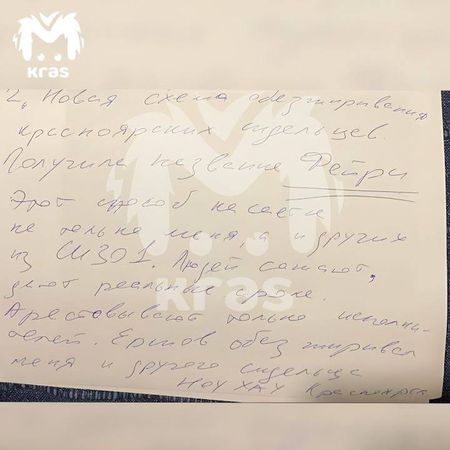 kras
2. Новая схема обезжиривания
красноярских сидельцев.
Получила название Фейри
Этот способ касается
не только меня, а и других
из СИЗО 1. Людей сажают,
дают реальные сроки.
Арестовывают только исполни-
телей. Ершов обезжиривал
меня и другого сидельца
Ноу ХАУ Красноярск
kras